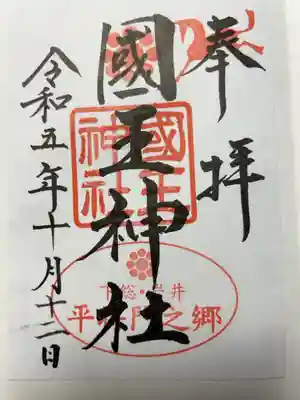 奉拝
國王神社
令和五年十月十二日
國王
神社
下総・岩井
平将門之郷